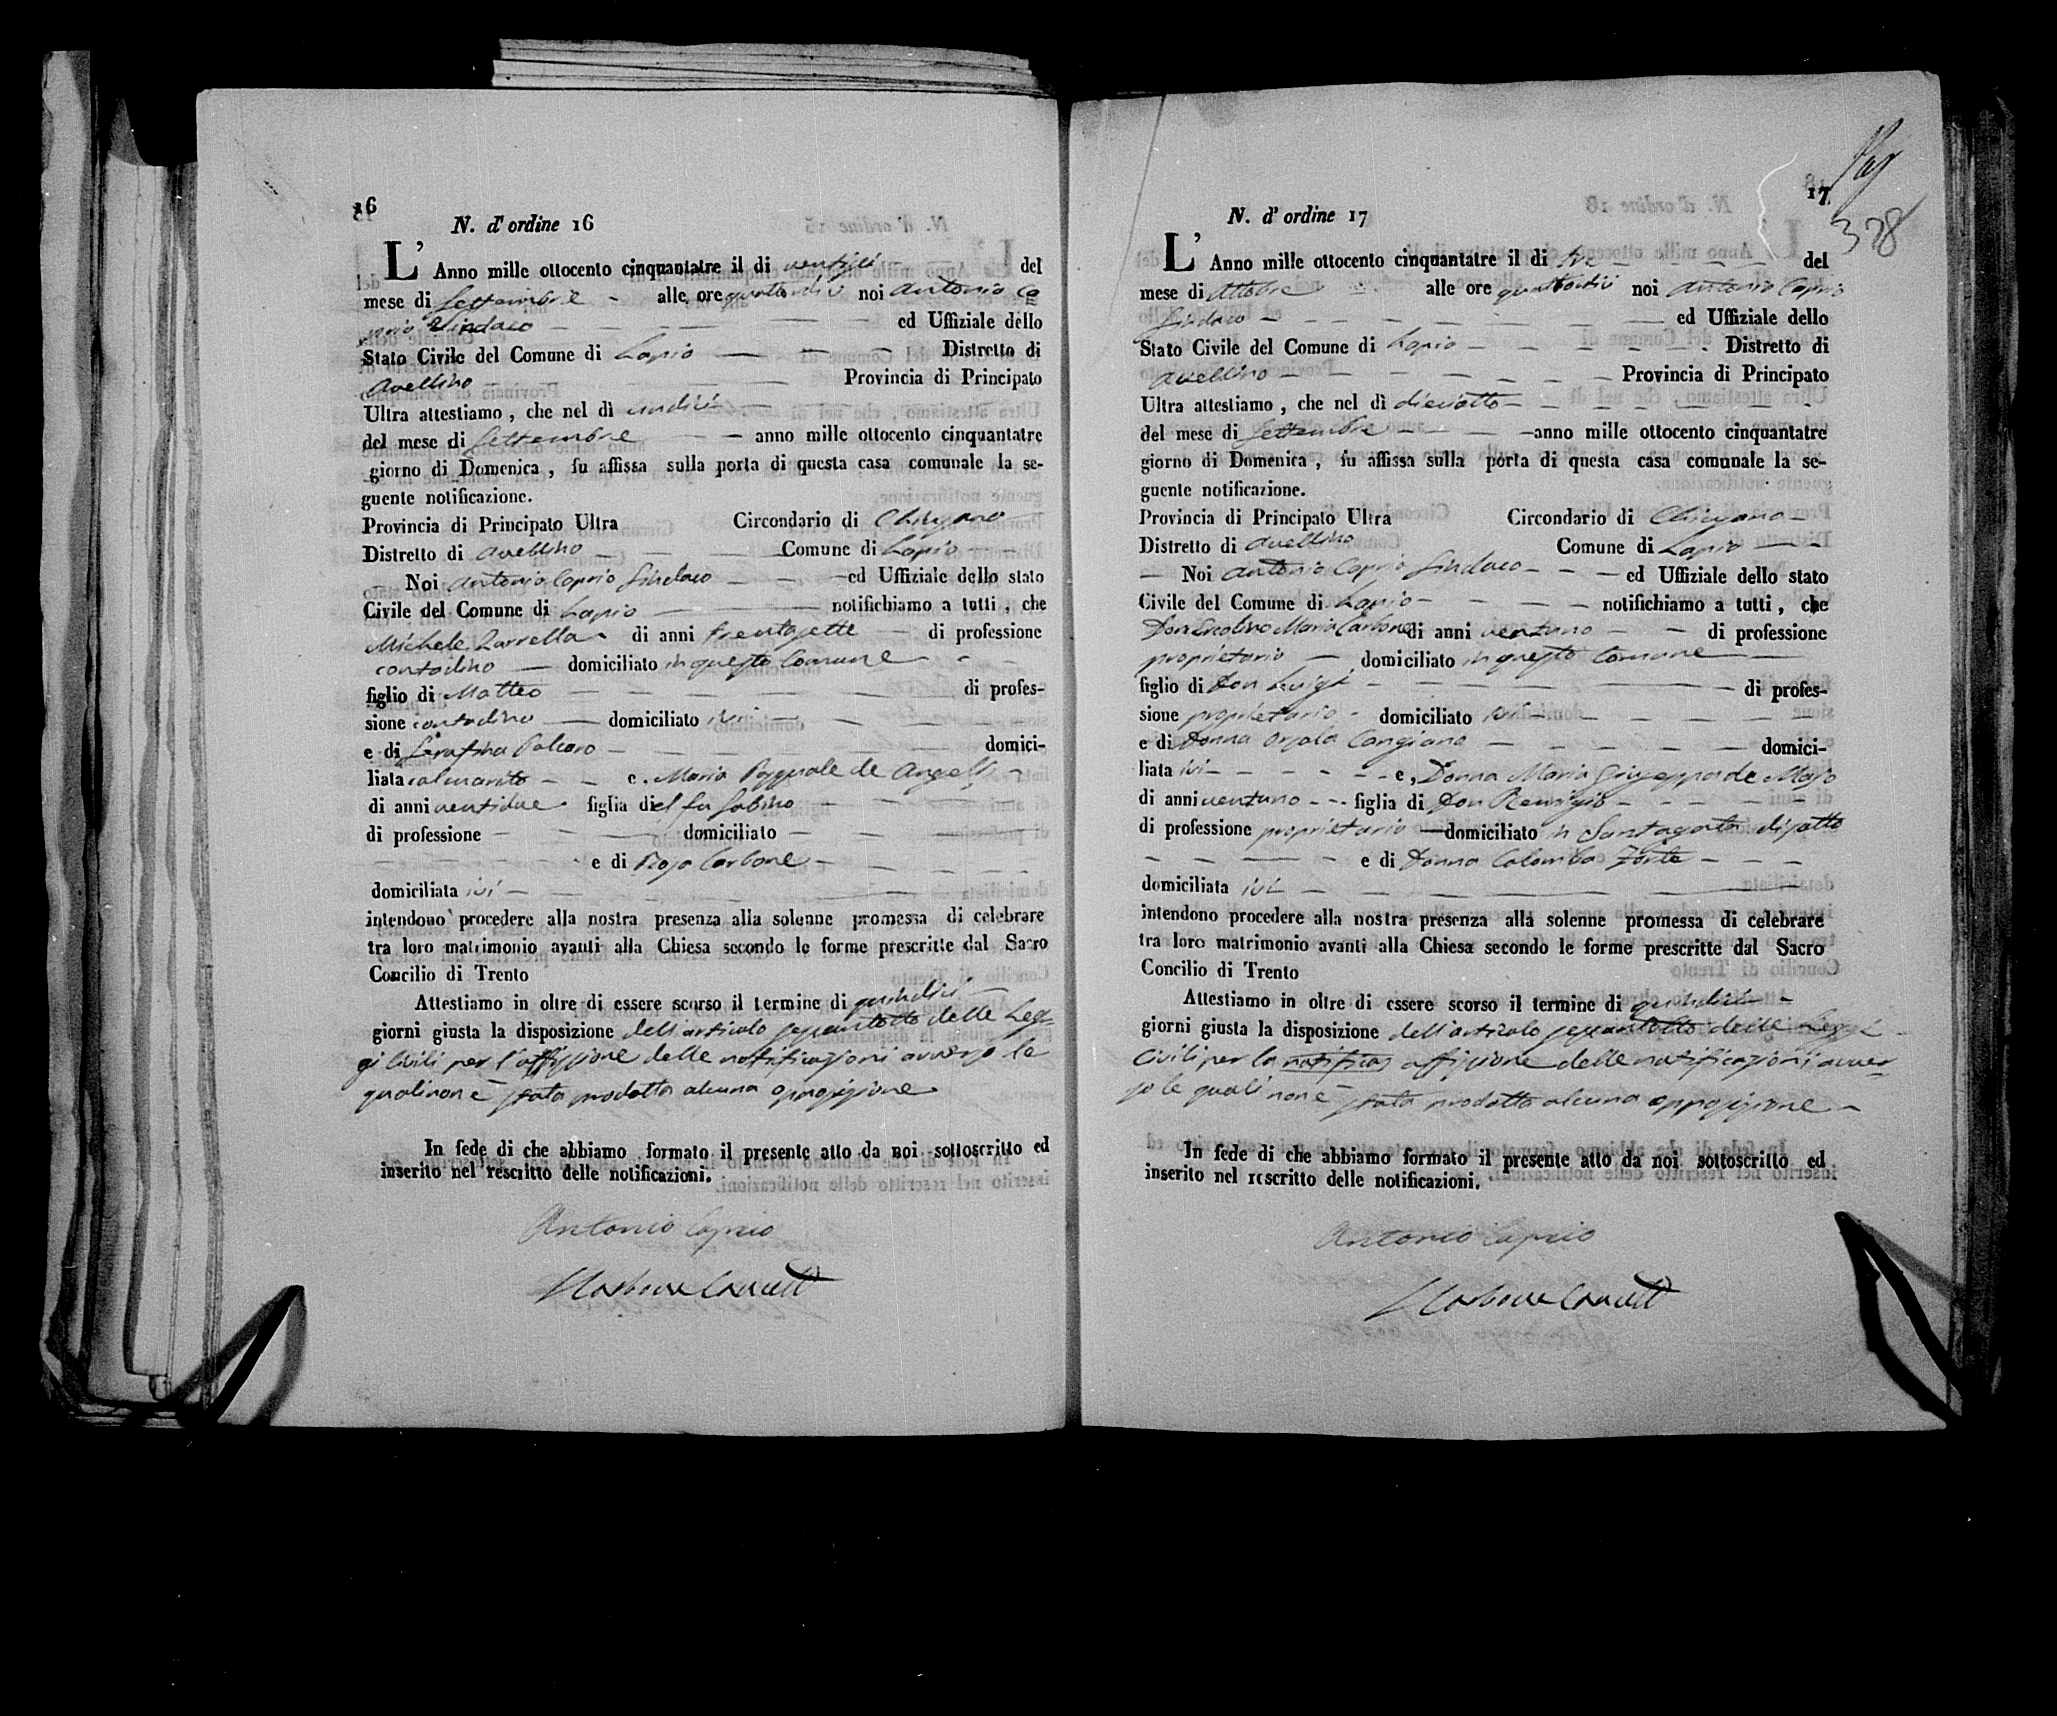 16
N. d'ordine 16
L' Anno mille ottocento cinquantatre il di ventisei del
mese di Settembre alle ore quattordici noi Antonio Ca
prio Sindaco ed Uffiziale dello
Stato Civile del Comune di Lapio Distretto di
Avellino Provincia di Principato
Ultra attestiamo, che nel dì undici
del mese di Settembre anno mille ottocento cinquantatre
giorno di Domenica, fu affissa sulla porta di questa casa comunale la se-
guente notificazione.
Provincia di Principato Ultra Circondario di Chiusano
Distretto di Avellino Comune di Lapio
Noi Antonio Caprio Sindaco ed Uffiziale dello stato
Civile del Comune di Lapio notifichiamo a tutti, che
Michele Zarrella di anni trentasette di professione
contadino domiciliato in questo Comune
figlio di Matteo di profes-
sione contadino domiciliato ivi
e di Serafina domici-
liata col marito e Maria Pasquale de Angelis
di anni ventidue figlia di el fu Sabino
di professione domiciliato
e di Rosa Carbone
domiciliata ivi
intendono procedere alla nostra presenza alla solenne promessa di celebrare
tra loro matrimonio avanti alla Chiesa secondo le forme prescritte dal Sacro
Concilio di Trento
Attestiamo in oltre di essere scorso il termine di quindici
giorni giusta la disposizione dell'articolo sessantotto delle Leg-
gi Civili per l'affissione delle notificazioni avverso le
quali non è stata prodotta alcuna opposizione
In fede di che abbiamo formato il presente atto da noi sottoscritto ed
inserito nel rescritto delle notificazioni.
Antonio Caprio
Carbone
17
378
N. d'ordine 17
L' Anno mille ottocento cinquantatre il di tre del
mese di Ottobre alle ore quattordici noi Antonio Caprio
Sindaco ed Uffiziale dello
Stato Civile del Comune di Lapio Distretto di
Avellino Provincia di Principato
Ultra attestiamo, che nel dì dieciotto
del mese di Settembre anno mille ottocento cinquantatre
giorno di Domenica, fu affissa sulla porta di questa casa comunale la se-
guente notificazione.
Provincia di Principato Ultra Circondario di Chiusano
Distretto di Avellino Comune di Lapio
Noi Antonio Caprio Sindaco ed Uffiziale dello stato
Civile del Comune di Lapio notifichiamo a tutti, che
Don Maria Carbone di anni ventuno di professione
proprietario domiciliato in questo Comune
figlio di Don Luigi di profes-
sione proprietario domiciliato ivi
e di Donna Orsola Cangiano domici-
liata ivi e, Donna Maria Giuseppa de Maso
di anni ventuno figlia di Don Remigio
di professione proprietario domiciliato in Santagata di sotto
e di Donna Colomba Forte
domiciliata ivi
intendono procedere alla nostra presenza alla solenne promessa di celebrare
tra loro matrimonio avanti alla Chiesa secondo le forme prescritte dal Sacro
Concilio di Trento
Attestiamo in oltre di essere scorso il termine di quindici
giorni giusta la disposizione dell'articolo sessantotto delle Leggi
Civili per la notificaz affissione delle notificazioni avver-
so le quali non è stata prodotta alcuna opposizione
In fede di che abbiamo formato il presente atto da noi sottoscritto ed
inserito nel rescritto delle notificazioni.
Antonio Caprio
Carbone